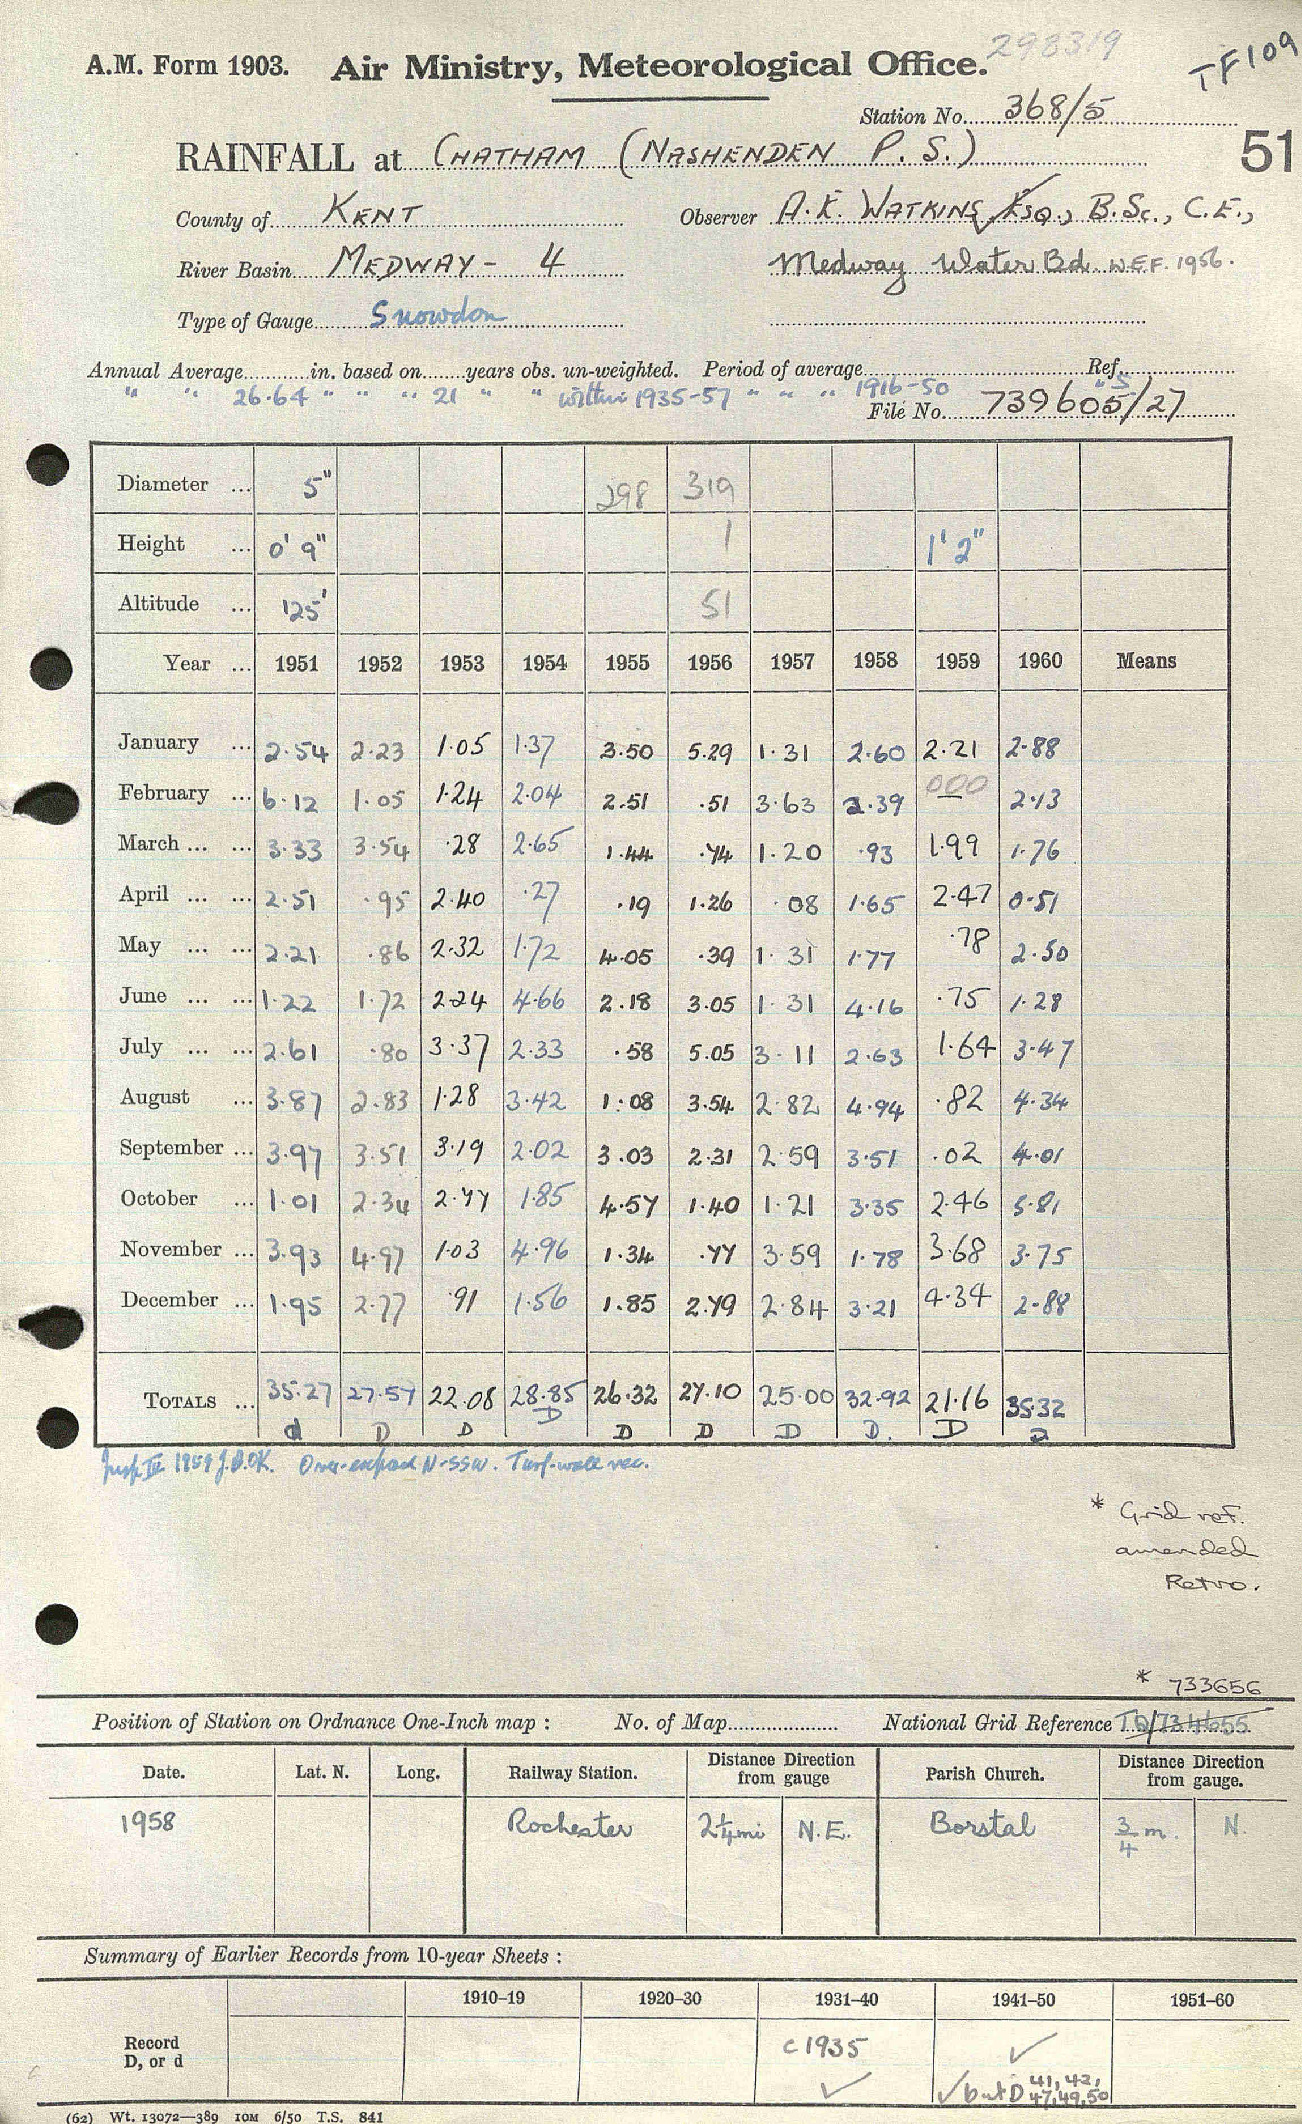 298319
TF109
A.M. Form 1903. Air Ministry, Meteorological Office.
Station No. 368/5
51
RAINFALL at CHATHAM (NASHENDEN P. S.)
County of KENT Observer A. E. WATKINS, ESQ., B.Sc., C.E.,
River Basin MEDWAY - 4 Medway Water Bd. W.E.F. 1956.
Type of Gauge Snowdon
Annual Average in. based on years obs. un-weighted. Period of average Ref.
" " 26.64 " " " 21 " " within 1935-57 " " " 1916-50 "S"
File No. 739605/27
Diameter ... 5" 298 319
Height ... 0' 9" 1 1' 2"
Altitude ... 125' 51
Year ... 1951 1952 1953 1954 1955 1956 1957 1958 1959 1960 Means
January ... 2.54 2.23 1.05 1.37 3.50 5.29 1.31 2.60 2.21 2.88
February ... 6.12 1.05 1.24 2.04 2.51 .51 3.63 2.39 000 — 2.13
March ... ... 3.33 3.54 .28 2.65 1.44 .74 1.20 .93 1.99 1.76
April ... ... 2.51 .95 2.40 .27 .19 1.26 .08 1.65 2.47 0.51
May ... ... 2.21 .86 2.32 1.72 4.05 .39 1.31 1.77 .78 2.50
June ... ... 1.22 1.72 2.24 4.66 2.18 3.05 1.31 4.16 .75 1.28
July ... ... 2.61 .80 3.37 2.33 .58 5.05 3.11 2.63 1.64 3.47
August ... 3.87 2.83 1.28 3.42 1.08 3.54 2.82 4.94 .82 4.34
September ... 3.97 3.51 3.19 2.02 3.03 2.31 2.59 3.51 .02 4.01
October ... 1.01 2.34 2.77 1.85 4.57 1.40 1.21 3.35 2.46 5.81
November ... 3.93 4.97 1.03 4.96 1.34 .77 3.59 1.78 3.68 3.75
December ... 1.95 2.77 .91 1.56 1.85 2.79 2.84 3.21 4.34 2.88
TOTALS ... 35.27 27.57 22.08 28.85 26.32 27.10 25.00 32.92 21.16 35.32
d D D D D D D D. D
1959 OK. Over-exposed N-SSW. Turf-wall rec.
* Grid ref.
amended
Retro.
* 733656
Position of Station on Ordnance One-Inch map : No. of Map National Grid Reference TQ/734655
Date. Lat. N. Long. Railway Station. Distance Direction from gauge Parish Church. Distance Direction from gauge.
1958 Rochester 2¼mi N.E. Borstal ¾ m. N.
Summary of Earlier Records from 10-year Sheets :
1910–19 1920–30 1931–40 1941–50 1951–60
Record c 1935 ✓
D, or d ✓ ✓ but D 41, 42, 47, 49, 50
(62) Wt. 13072—389 10M 6/50 T.S. 841